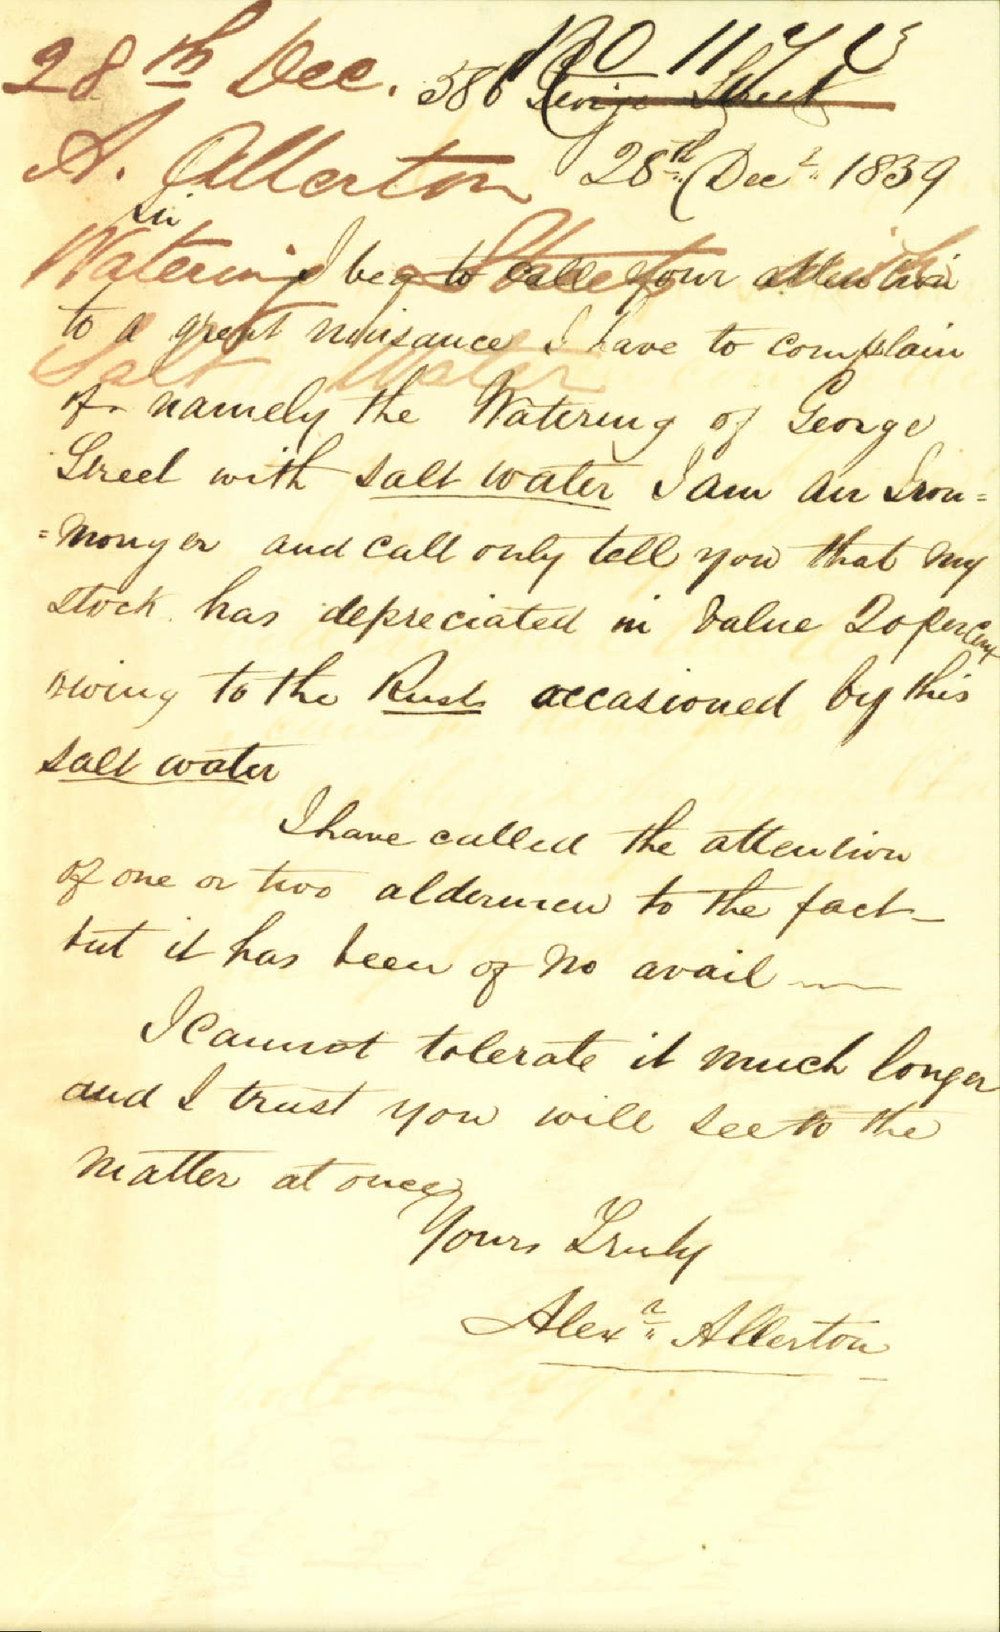 28th Dec. No 1175
586 George Street
A. Allerton 28th Decr 1839
Sir
Watering Streets with
I beg to call your attention
to a great nuisance I have to complain
Salt Water
of namely the Watering of George
Street with salt water I am an Iron=
=monger and call only tell you that my
stock has depreciated in value 20 per Cent
owing to the Rust occasioned by this
salt water
I have called the attention
of one or two aldermen to the fact
but it has been of no avail
I cannot tolerate it much longer
and I trust you will see to the
matter at once
Yours Truly
Alexr Allerton